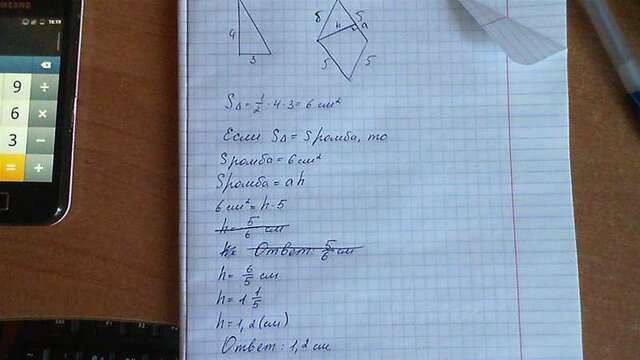 SAMSUNG
18:19
9 ÷
6 ×
3 −
= +
4
3
5 5
h a
5 5
S△ = 1/2 · 4 · 3 = 6 см²
Если S△ = Sромба, то
Sромба = 6 см²
Sромба = ah
6 см² = h · 5
h = 5/6 см
h = Ответ: 5/6 см
h = 6/5 см
h = 1 1/5
h = 1,2 (см)
Ответ: 1,2 см